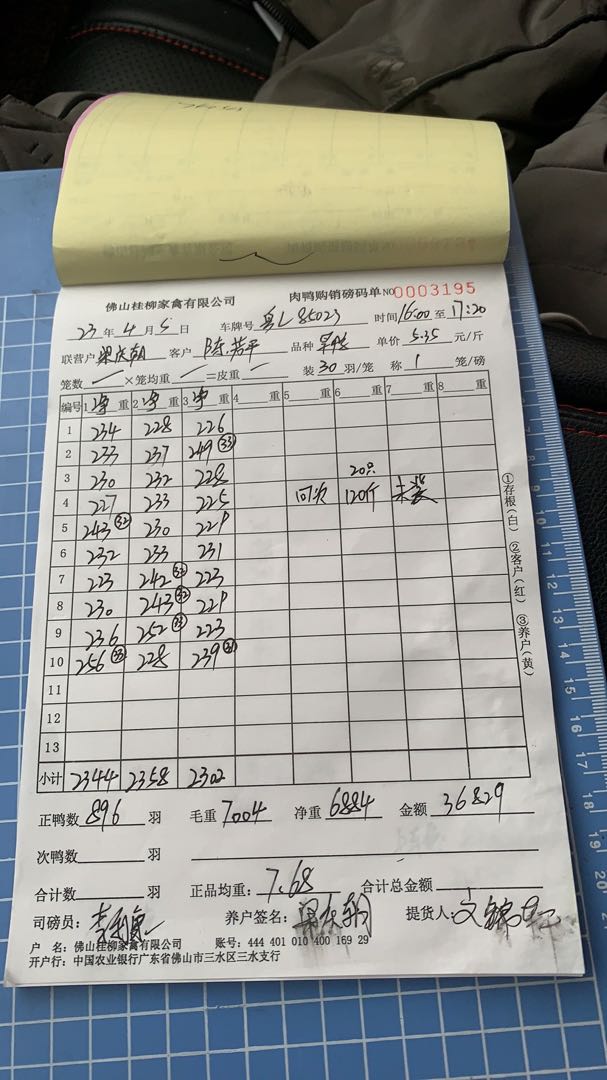 佛山桂柳家禽有限公司 肉鸭购销磅码单 NO 0003195
23 年 4 月 5 日 车牌号 粤L85023 时间 16:00 至 17:20
联营户 梁庆朝 客户 陈若平 品种 单价 5.35 元/斤
笼数 — ×笼均重 — =皮重 — 装 30 羽/笼 称 1 笼/磅
编号 1 净 重 2 净 重 3 净 重 4 重 5 重 6 重 7 重 8 重
1 234 228 226
2 233 237 249 (33)
3 230 232 228 20只
4 227 233 225 回次 120斤 未装
5 243 (32) 230 229
6 232 233 231
7 223 242 (32) 223
8 230 243 (32) 229
9 236 252 (33) 223
10 256 (33) 228 239 (31)
11
12
13
小计 2344 2358 2302
正鸭数 896 羽 毛重 7004 净重 6884 金额 36829
次鸭数 羽
合计数 羽 正品均重: 7.68 合计总金额
司磅员: 养户签名: 梁庆朝 提货人:
户 名: 佛山桂柳家禽有限公司 账号: 444 401 010 400 169 29
开户行: 中国农业银行广东省佛山市三水区三水支行
①存根(白) ②客户(红) ③养户(黄)
12 13 14 15 16 17 18 19